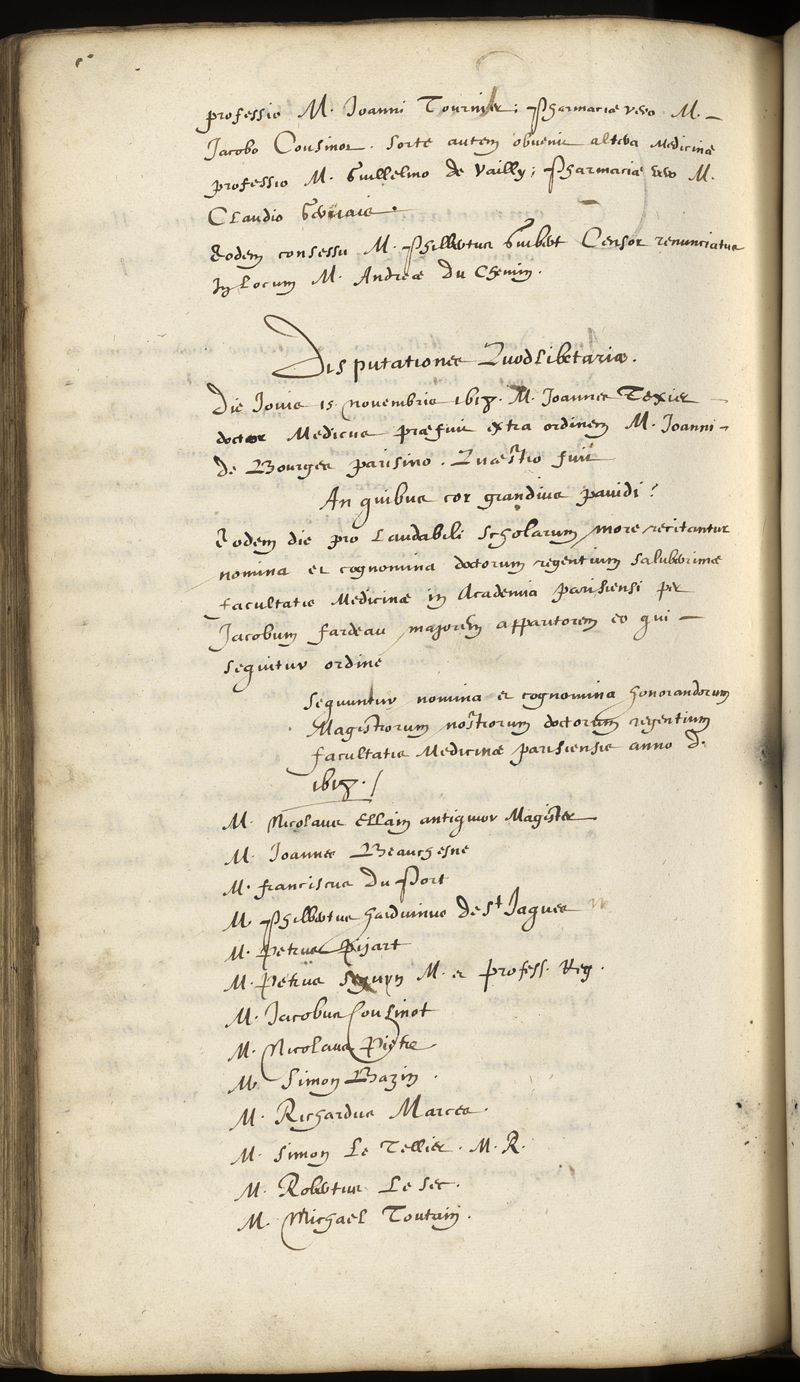 professio M. Joanni Tournier; Pharmaciæ vero M.
Jacobo Cousinot. Sorte autem obvenit altera Medicinæ
professio M. Guillelmo de Vailly; Pharmaciæ vero M.
Claudio Gervais.
Eodem consessu M. Philbertus Guibert Censor renunciatus
In Locum M. Andreæ Du Chemin.
Disputationes Quodlibetariæ.
Die Jovis 15 novembris 1618. M. Joannes Texier
doctor Medicus præfuit extra ordinem M. Joanni
de Bourges parisino. Quæstio fuit
An quibus cor grandius pavidi?
Eodem die pro Laudabili scholarum more recitantur
nomina et cognomina doctorum regentium saluberrimæ
facultatis Medicinæ in Academia parisiensi per
Jacobum fardeau majorem apparitorem eo qui
sequitur ordine
Sequuntur nomina et cognomina honorandorum
Magistrorum nostrorum doctorum regentium
facultatis Medicinæ parisiensis anno d.
1618.
M. Nicolaus Ellain antiquior Magister
M. Joannes Beauchesne
M. franciscus Du Port
M. Philbertus harduinus de St Jaques
M. Petrus Pijart
M. Petrus Seguyn M. et profess. Reg.
M. Jacobus Cousinot
M. Nicolaus Pietre
M. Simon Bazin.
M. Richardus Marces.
M. Simon Le Tellier. M. R.
M. Robertus Le Sec.
M. Michael Toutain.